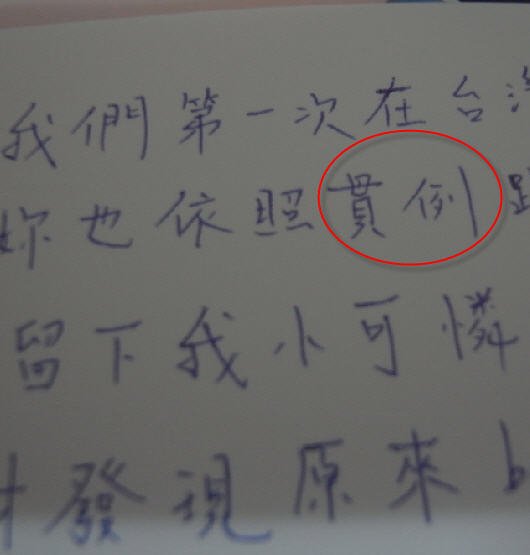 我們第一次在台
妳也依照貫例
留下我小可憐
發現原來b